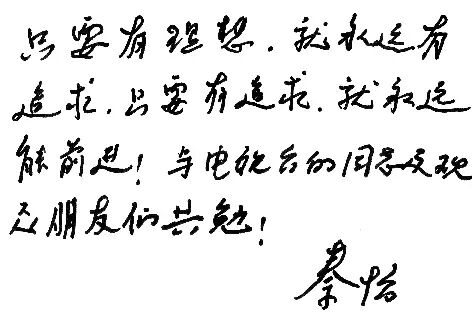 只要有理想，就永远有
追求，只要有追求，就永远
能前进！与电视台的同志及观
众朋友们共勉！
秦怡